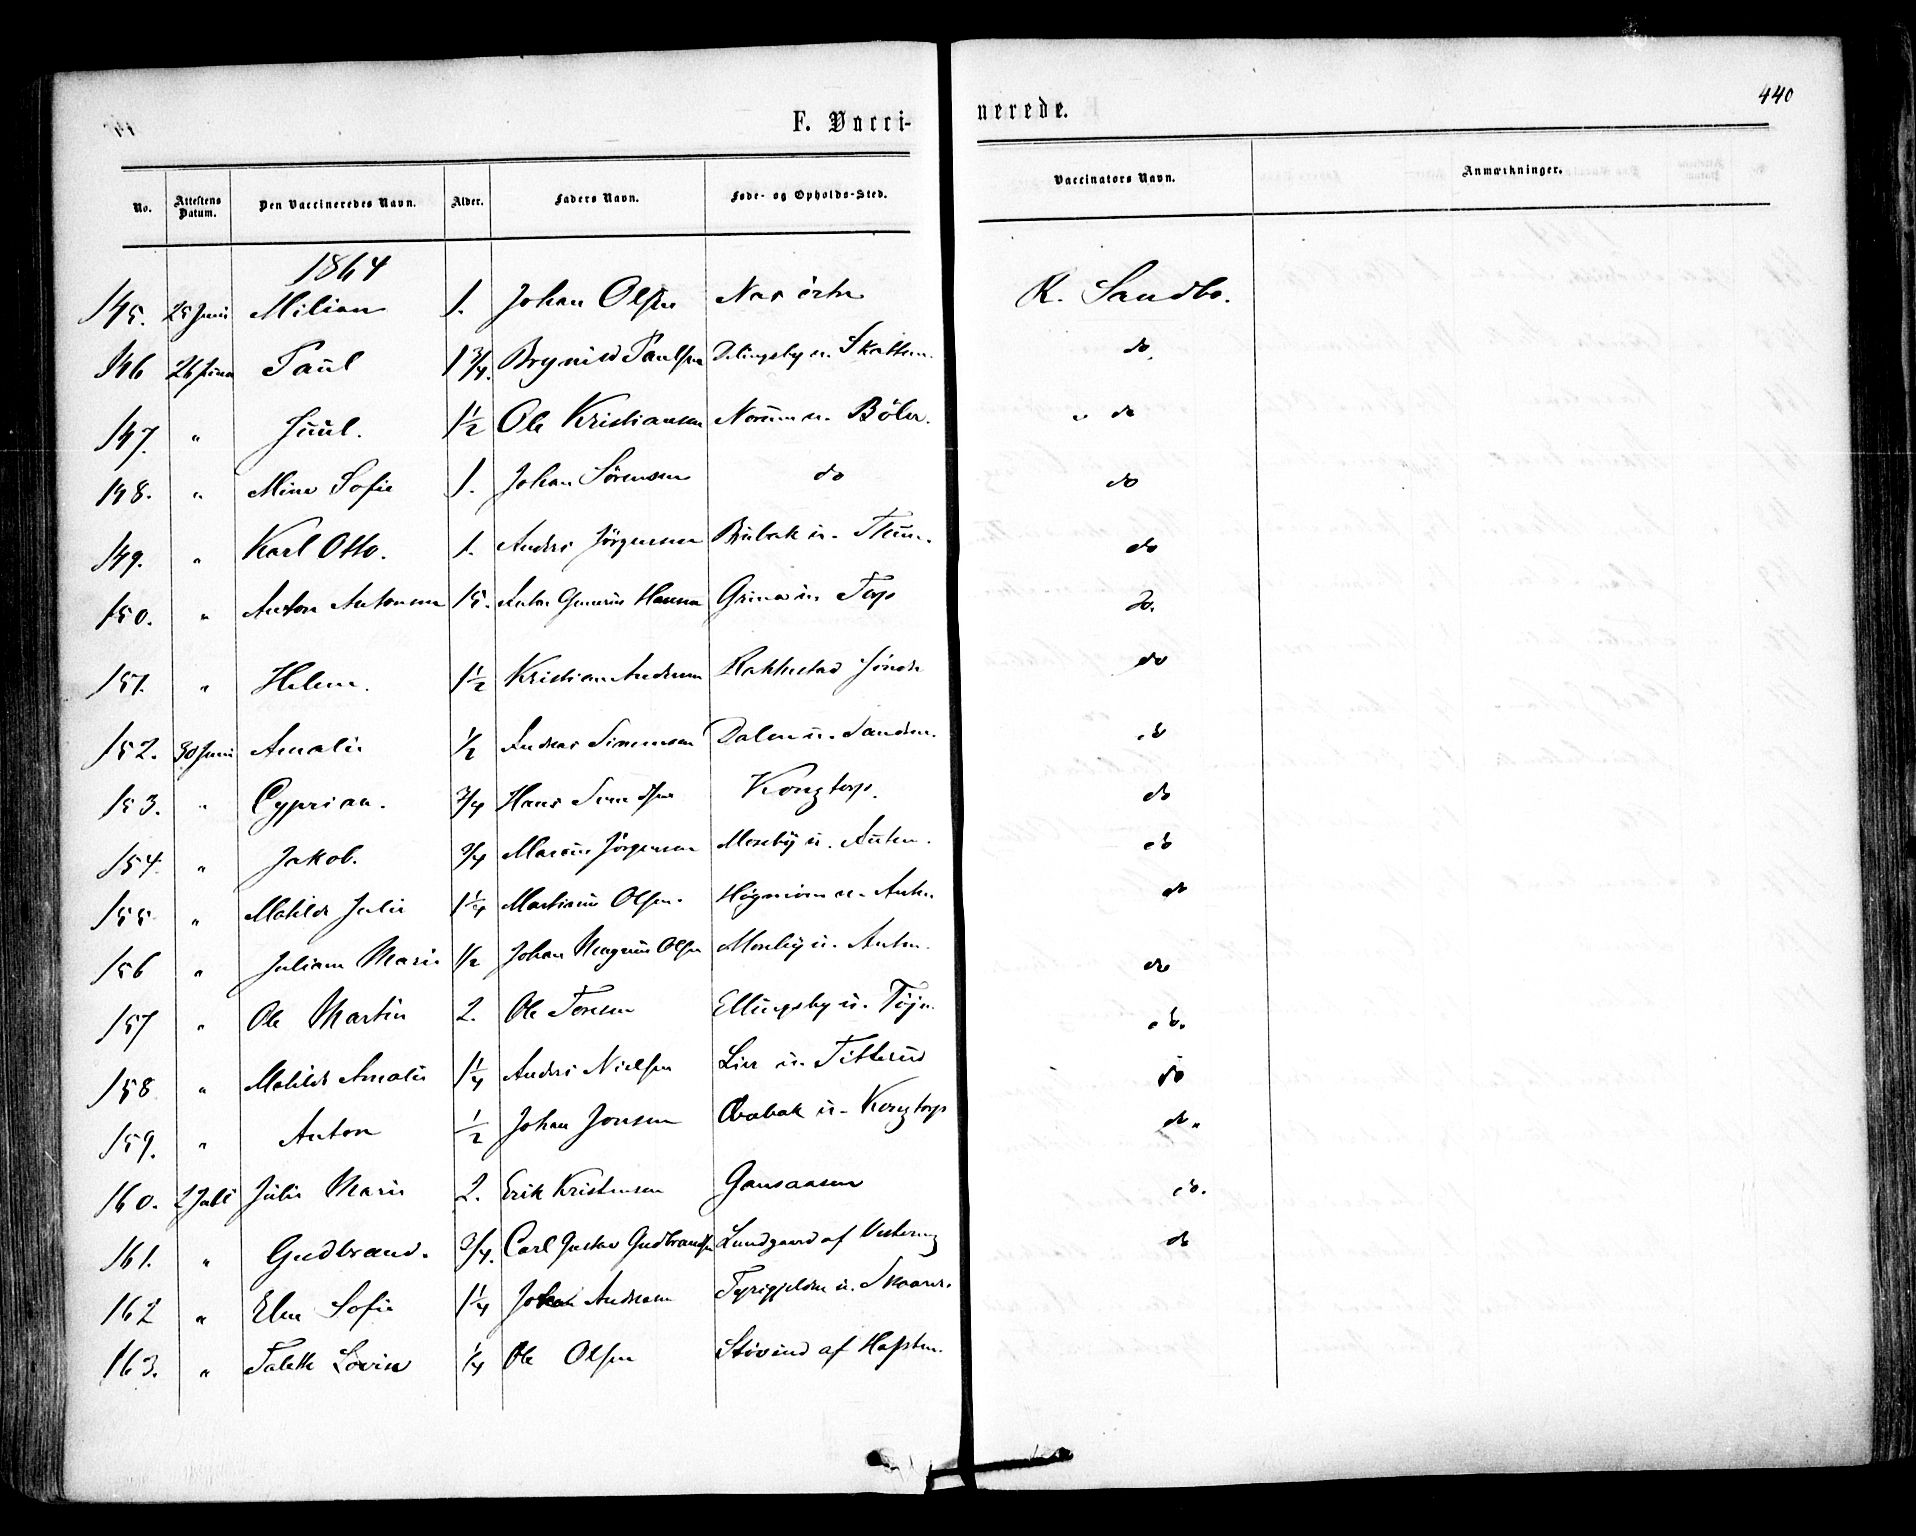 440
F. Vacci- nerede.
No. Attestens Datum. Den Vaccineredes Navn. Alder. Faders Navn. Føde- og Opholds-Sted. Vaccinators Navn. Anmærkninger.
1864
145. 25 Juni Milian 1. Johan Olsen Nas K. Sandbo.
146 26 Juni Paul 1 3/4. Paulsen do.
147. " Juul. 1 1/2 Ole Kristiansen Norum u. Böler. " do
148. " Mina Sofie 1. Johan Sörensen do do
149. " Karl Otto. 1. Anders Jörgensen u. do
150. " Anton Antonsen 15. Anton Gunerius Hansen Grina u. Torp do.
151. " Helene. 1 1/2 Kristian Andersen Rakkestad do
152. 30 Juni Amalie 1/2 Andreas Simensen Dalen u. do
153. " Cyprian. 3/4 Hans Kongtorp. do
154. " Jakob. 3/4 Marius Jörgensen Moseby u. do
155 " Matilde Julie 1 1/4 Martinius Olsen. u. do
156 " Juliane Marie 1/2 Johan Magnus Olsen Moseby u. do
157 " Ole Martin 2. Ole Toresen Ellingsby u. do.
158 " Matilde Amalie 1 1/4 Anders Nielsen Lier u. Titterud do
159. " Anton 1/2 Johan Jonsen u. Kongtorp do.
160. 2 Juli Julie Marie 2. Erik Kristensen do.
161. " Gudbrand. 3/4. Carl Gustav Gudbrandsen Lundgaard af do
162 " Elen Sofie 1 1/4 Johan Andersen u.
163. " Lovise 1/4 Ole Olsen af